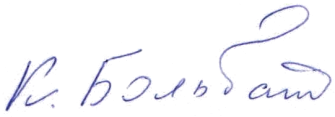 Кл. Больбат